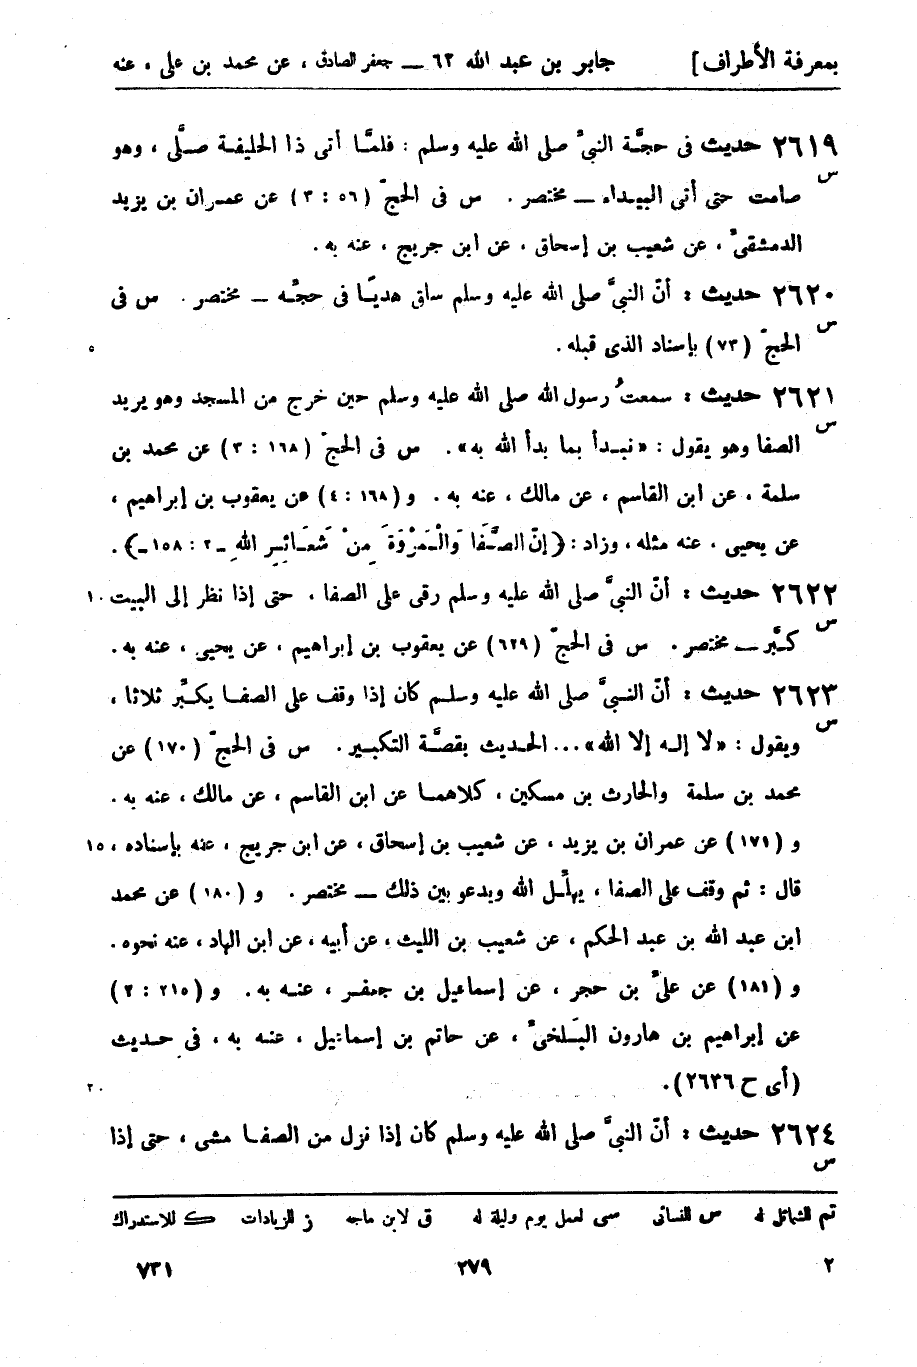 بمعرفة الأطراف] جابر بن عبد الله ٦٢ — جعفر الصادق ، عن محمد بن على ، عنه
٢٦١٩ حديث فى حجَّة النبىّ صلى الله عليه وسلم : فلمَّا أتى ذا الحليفة صلَّى ، وهو
س
صامت حتى أتى البيداء — مختصر . س فى الحجّ (٥٦ : ٣) عن عمران بن يزيد
الدمشقىّ ، عن شعيب بن إسحاق ، عن ابن جريج ، عنه به .
٢٦٢٠ حديث : أنّ النبىَّ صلى الله عليه وسلم ساق هديًا فى حجّه — مختصر . س فى
س
الحجّ (٧٣) بإسناد الذى قبله .
٥
٢٦٢١ حديث : سمعتُ رسول الله صلى الله عليه وسلم حين خرج من المسجد وهو يريد
س
الصفا وهو يقول : «نبدأ بما بدأ الله به» . س فى الحجّ (١٦٨ : ٣) عن محمد بن
سلمة ، عن ابن القاسم ، عن مالك ، عنه به . و (١٦٨ : ٤) عن يعقوب بن إبراهيم ،
عن يحيى ، عنه مثله ، وزاد : ﴿إنّ الصَّفَا وَالْمَرْوَةَ مِنْ شَعَائِرِ اللهِ -٢ : ١٥٨-﴾ .
٢٦٢٢ حديث : أنّ النبىَّ صلى الله عليه وسلم رقى على الصفا ، حتى إذا نظر إلى البيت ١٠
س
كبَّر — مختصر . س فى الحجّ (٦٢٩) عن يعقوب بن إبراهيم ، عن يحيى ، عنه به .
٢٦٢٣ حديث : أنّ النبىَّ صلى الله عليه وسلم كان إذا وقف على الصفا يكبِّر ثلاثا ،
س
ويقول : «لا إله إلا الله» ... الحديث بقصَّة التكبير . س فى الحجّ (١٧٠) عن
محمد بن سلمة والحارث بن مسكين ، كلاهما عن ابن القاسم ، عن مالك ، عنه به .
و (١٧١) عن عمران بن يزيد ، عن شعيب بن إسحاق ، عن ابن جريج ، عنه بإسناده ، ١٥
قال : ثم وقف على الصفا ، يهلِّل الله ويدعو بين ذلك — مختصر . و (١٨٠) عن محمد
ابن عبد الله بن عبد الحكم ، عن شعيب بن الليث ، عن أبيه ، عن ابن الهاد ، عنه نحوه .
و (١٨١) عن علىّ بن حجر ، عن إسماعيل بن جعفر ، عنه به . و (٢١٥ : ٢)
عن إبراهيم بن هارون البَلخىّ ، عن حاتم بن إسماعيل ، عنه به ، فى حديث
(أى ح ٢٦٣٦) .
٢٠
٢٦٢٤ حديث : أنّ النبىَّ صلى الله عليه وسلم كان إذا نزل من الصفا مشى ، حتى إذا
س
تم للشمائل له س للنسائى سى لعمل يوم وليلة له ق لابن ماجه ز للزيادات ك للاستدراك
٢ ٢٧٩ ٧٣١